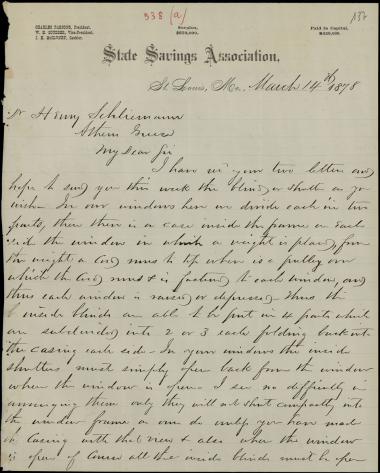 538 (a)
137
CHARLES PARSONS, President.
Surplus,
Paid in Capital,
State Savings Association.
St. Louis, Mo. March 14th 1878
Dr Henry Schliemann
Athens Greece
My Dear Sir
I have rec'd your two letters and
hope to send you this week the blind or shutter as you
wish. In our windows here we divide each in two
parts, then there is a case inside the frame on each
side the window in which a weight is placed, from
the weight a cord runs to top where is a pully over
which the cord runs & is fastened to each window, and
thus each window is raised or depressed. Thus the
inside blinds are able to be put in 4 parts which
are subdivided into 2 or 3 each folding back into
the casing each side - In your windows the inside
shutters must simply open back from the window
when the window is open - I see no difficulty in
arranging them only they will not shut compactly into
the window frame as one do unless you have made
casing with that view & also when the window
is open of course all the inside blinds must be open